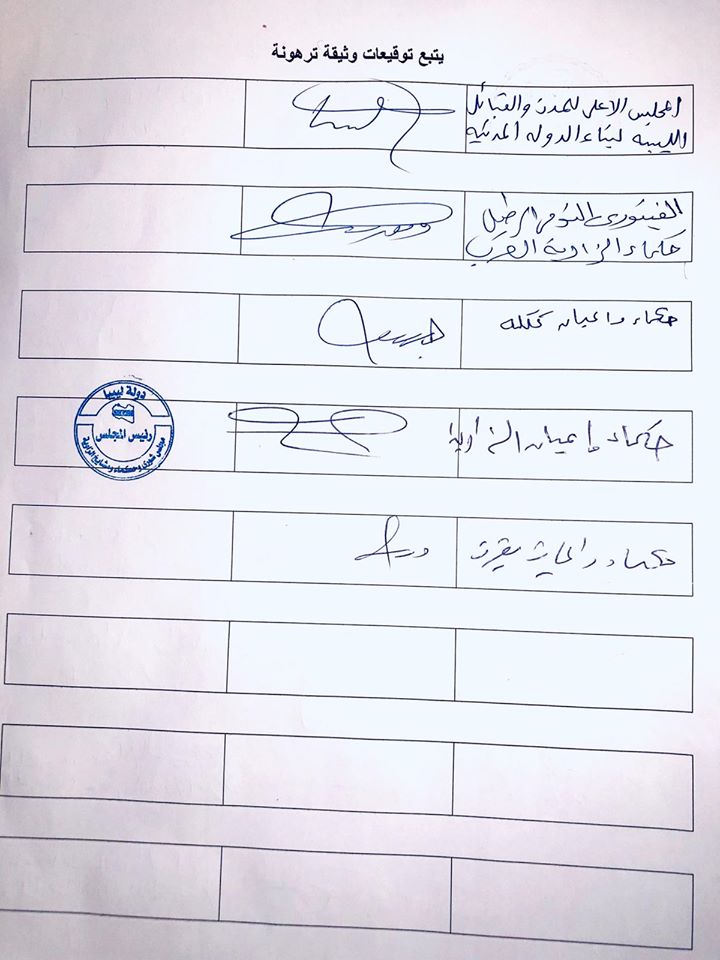 يتبع توقيعات وثيقة ترهونة
المجلس الاعلى للمدن والقبائل
الليبيه لبناء الدوله المدنيه
الفيتوري
حكماء الزاوية الغرب
حكماء واعيان ككله
حكماء واعيان الزاوية
دولة ليبيا
رئيس المجلس
مجلس شورى وحكماء ومشايخ الزاوية
حكماء